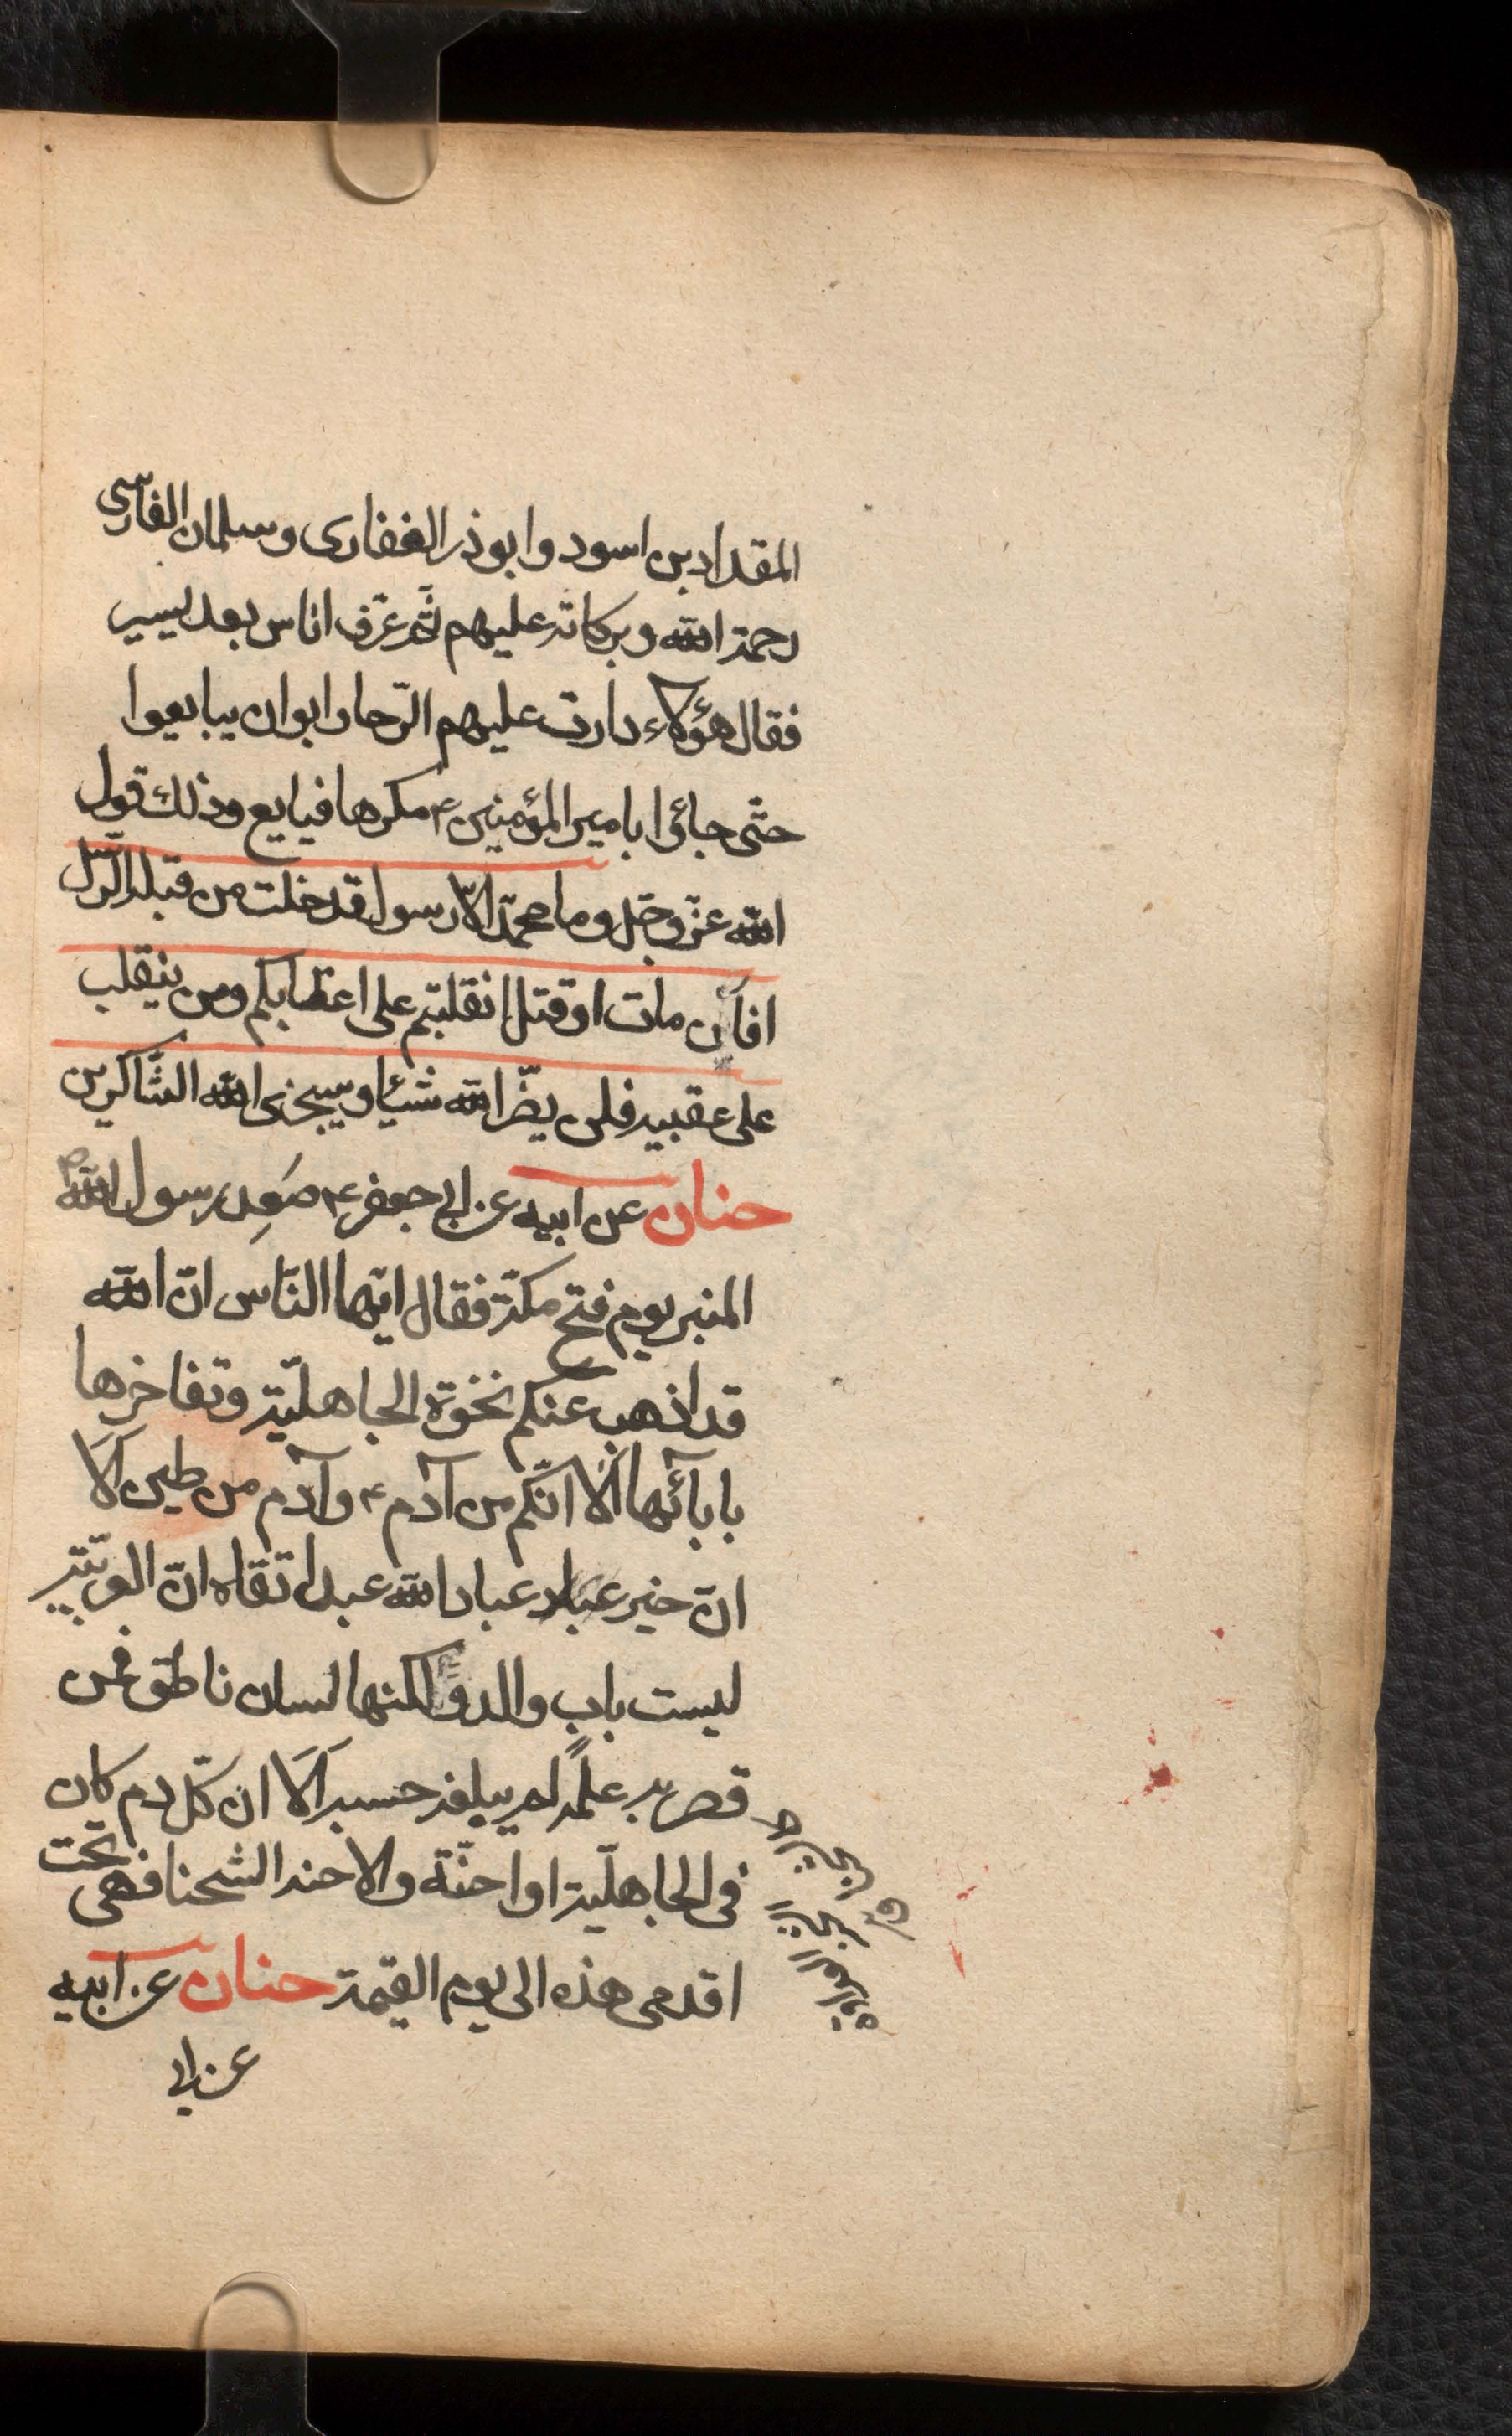 المقداد بن اسود وابوذر الغفاری وسلمان الفارسی
رحمة الله وبرکاته علیهم ثم عرف اناس بعد یسیر
فقال هؤلاء دارت علیهم الرّحا وابوا ان یبایعوا
حتّی جاؤا بامیر المؤمنین ع مکرها فبایع وذلک قول
الله عزّ وجلّ وما محمّد الّا رسول قد خلت من قبله الرّسل
افآن مات او قتل انقلبتم علی اعقابکم ومن ینقلب
علی عقبیه فلن یضرّ الله شیئا وسیجزی الله الشّاکرین
حنان عن ابیه عن ابی جعفر ع صَعِد رسول الله ص
المنبر یوم فتح مکّة فقال ایّها النّاس انّ الله
قد اذهب عنکم نخوة الجاهلیّة وتفاخرها
بابآئها اَلَا انّکم من آدم ع وآدم من طین اَلَا
انّ خیر عباد عباد الله عبد اتقاه انّ العربیّة
لیست باب والد ولکنها لسان ناطق فمن
قصر به علمه لم یبلغه حسبه اَلَا ان کلّ دم کان
فی الجاهلیّة او احنّة والاحنه الشحنا فهی تحت
اقدمی هذه الی یوم القیمة حنان عن ابیه
عن ابی